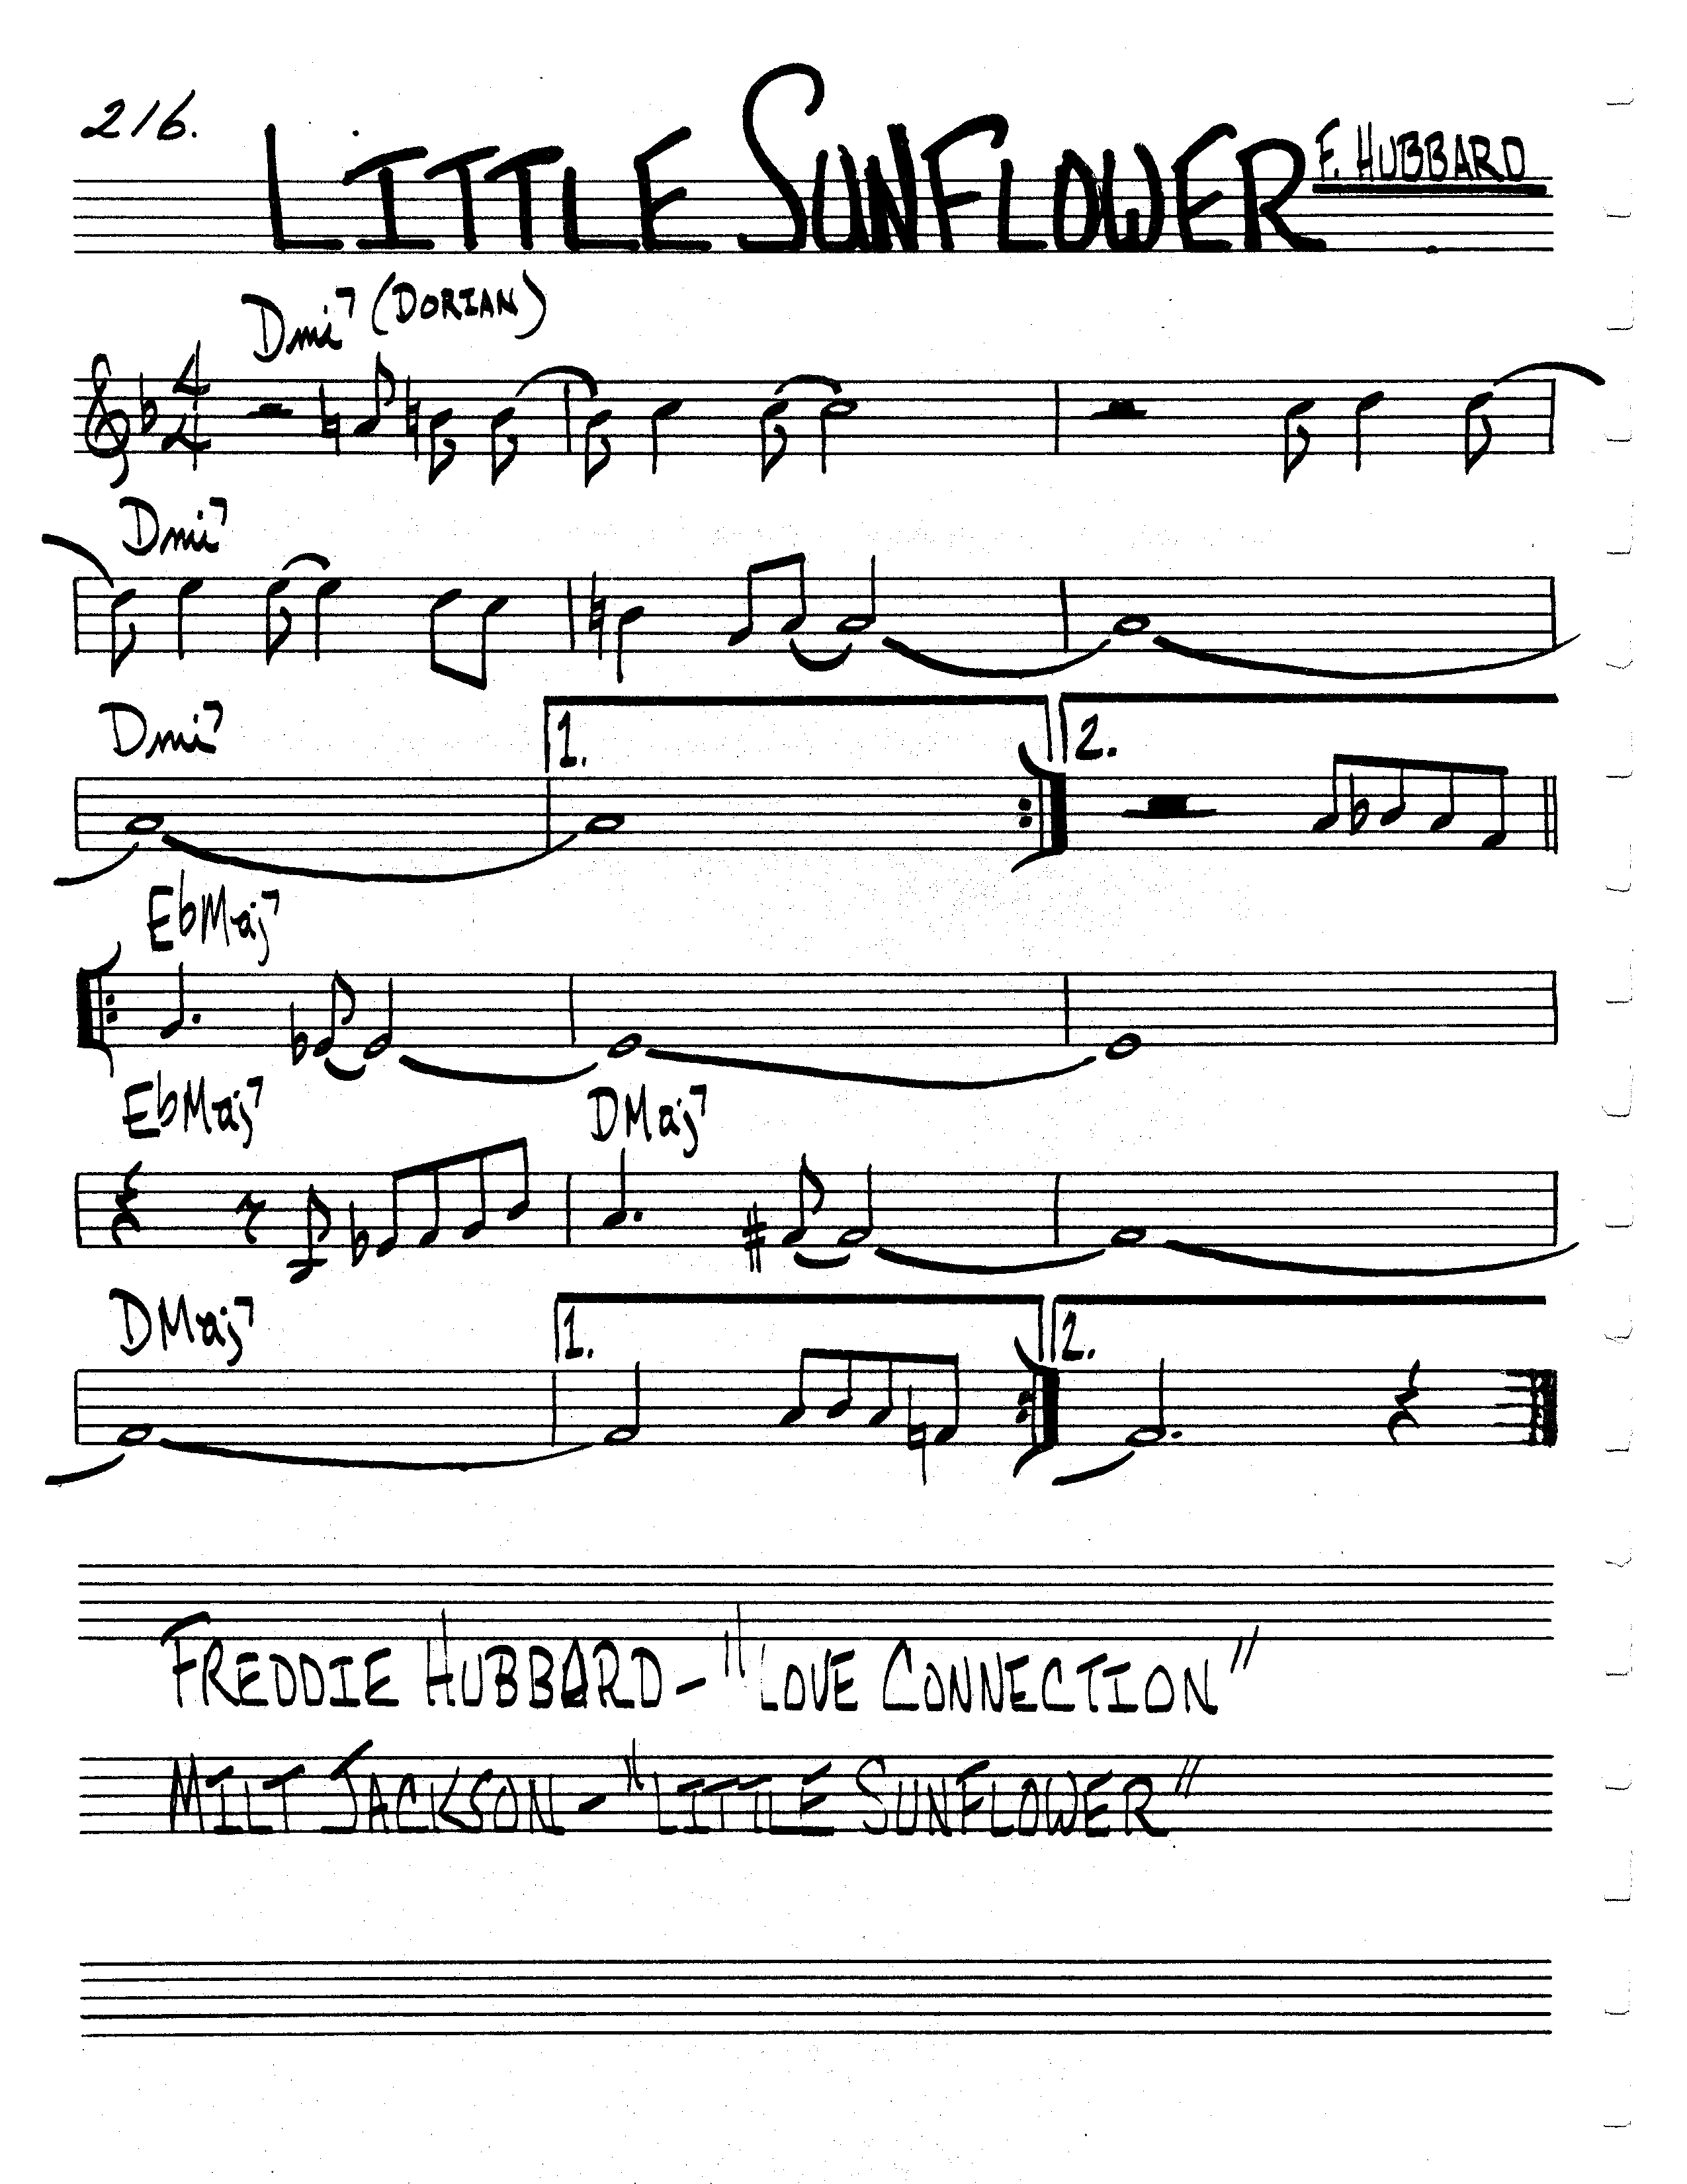 216.
LITTLE SUNFLOWER
F. HUBBARD
Dmi7 (DORIAN)
4
4
Dmi7
Dmi7
1.
2.
EbMaj7
EbMaj7
DMaj7
DMaj7
1.
2.
FREDDIE HUBBARD - "LOVE CONNECTION"
MILT JACKSON - "LITTLE SUNFLOWER"